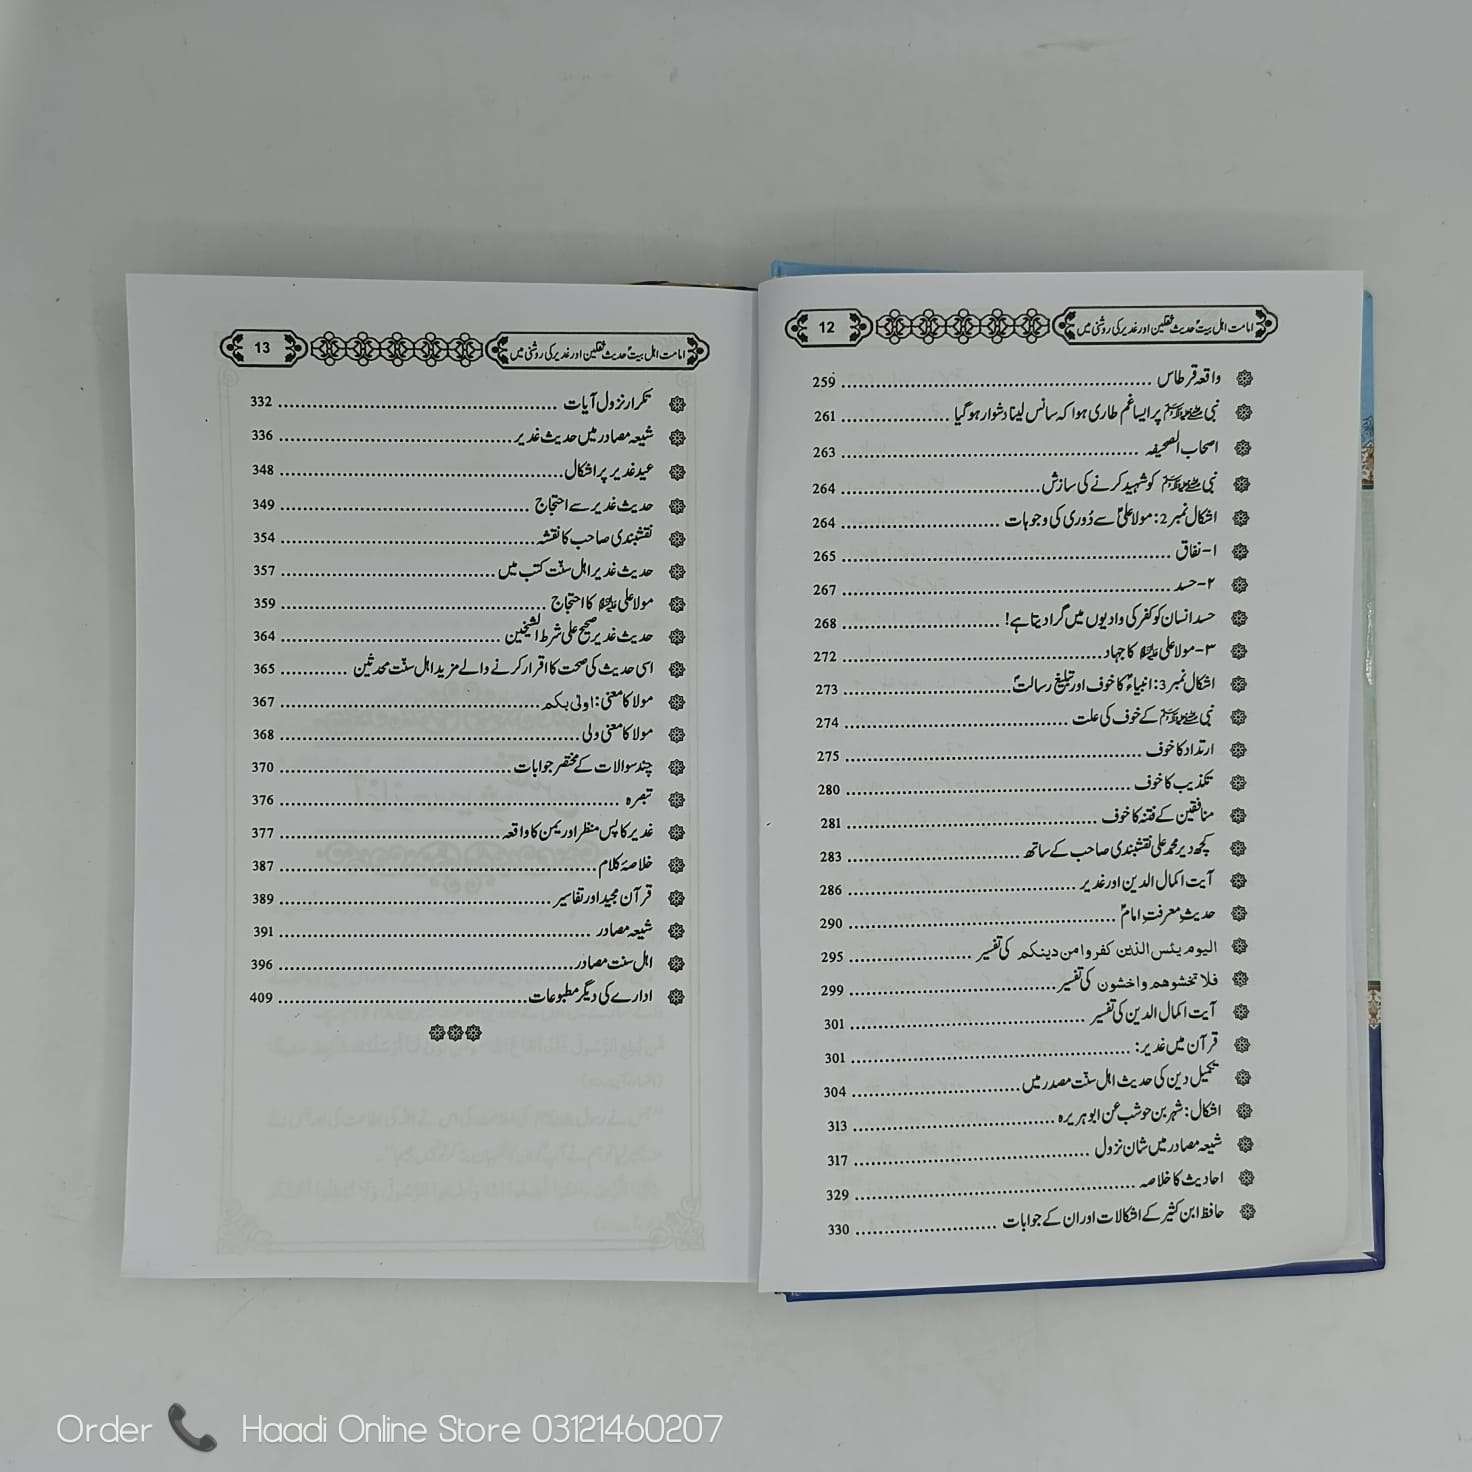 امامت اہل بیتؑ حدیث ثقلین اور غدیر کی روشنی میں 12
واقعہ قرطاس 259
نبی ﷺ پر ایسا غم طاری ہوا کہ سانس لینا دشوار ہو گیا 261
اصحاب الصحیفہ 263
نبی ﷺ کو شہید کرنے کی سازش 264
اشکال نمبر 2: مولا علیؑ سے دُوری کی وجوہات 264
۱- نفاق 265
۲- حسد 267
حسد انسان کو کفر کی وادیوں میں گرا دیتا ہے! 268
۳- مولا علی علیہ السلام کا جہاد 272
اشکال نمبر 3: انبیاءؑ کا خوف اور تبلیغ رسالتؐ 273
نبی ﷺ کے خوف کی علت 274
ارتداد کا خوف 275
تکذیب کا خوف 280
منافقین کے فتنہ کا خوف 281
کچھ دیر محمد علی نقشبندی صاحب کے ساتھ 283
آیت اکمال الدین اور غدیر 286
حدیثِ معرفتِ امامؑ 290
الیوم یئس الذین کفروا من دینکم کی تفسیر 295
فلا تخشوھم واخشون کی تفسیر 299
آیت اکمال الدین کی تفسیر 301
قرآن میں غدیر: 301
تکمیل دین کی حدیث اہل سنّت مصدر میں 304
اشکال: شہر بن حوشب عن ابو ہریرہ 313
شیعہ مصادر میں شان نزول 317
احادیث کا خلاصہ 329
حافظ ابن کثیر کے اشکالات اور ان کے جوابات 330
امامت اہل بیتؑ حدیث ثقلین اور غدیر کی روشنی میں 13
تکرار نزول آیات 332
شیعہ مصادر میں حدیث غدیر 336
عید غدیر پر اشکال 348
حدیث غدیر سے احتجاج 349
نقشبندی صاحب کا نقشہ 354
حدیث غدیر اہل سنّت کتب میں 357
مولا علی علیہ السلام کا احتجاج 359
حدیث غدیر صحیح علی شرط الشیخین 364
اسی حدیث کی صحت کا اقرار کرنے والے مزید اہل سنّت محدثین 365
مولا کا معنی: اولیٰ بکم 367
مولا کا معنی ولی 368
چند سوالات کے مختصر جوابات 370
تبصرہ 376
غدیر کا پس منظر اور یمن کا واقعہ 377
خلاصۂ کلام 387
قرآن مجید اور تفاسیر 389
شیعہ مصادر 391
اہل سنت مصادر 396
ادارے کی دیگر مطبوعات 409
Order Haadi Online Store 03121460207